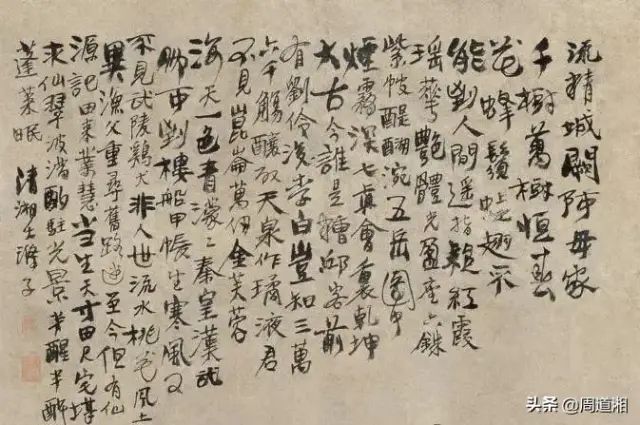 流精城闕阿母家
千樹萬樹恒春
花蜂鬚蝶翅不
能到人間遥指紅霞
瑶華艷體光盈座六銖
紫帔醍醐涴五岳圖中
煙霧深七真會裏乾坤
大古今誰是糟邱客前
有劉伶後李白豈知三萬
六千觴釀取天泉作璚液君
不見崑崙萬仞金芙蓉
海天一色青濛々秦皇漢武
到樓船甲帳生寒風又
不見武陵鷄犬非人世流水桃花風土
異漁父重尋舊路迷至今但有仙
源記由來業慧當生天寸田尺宅堪
求仙翠波滿酌駐光景半醒半醉
蓬萊眠 清湘大滌子
头条 @周道湘